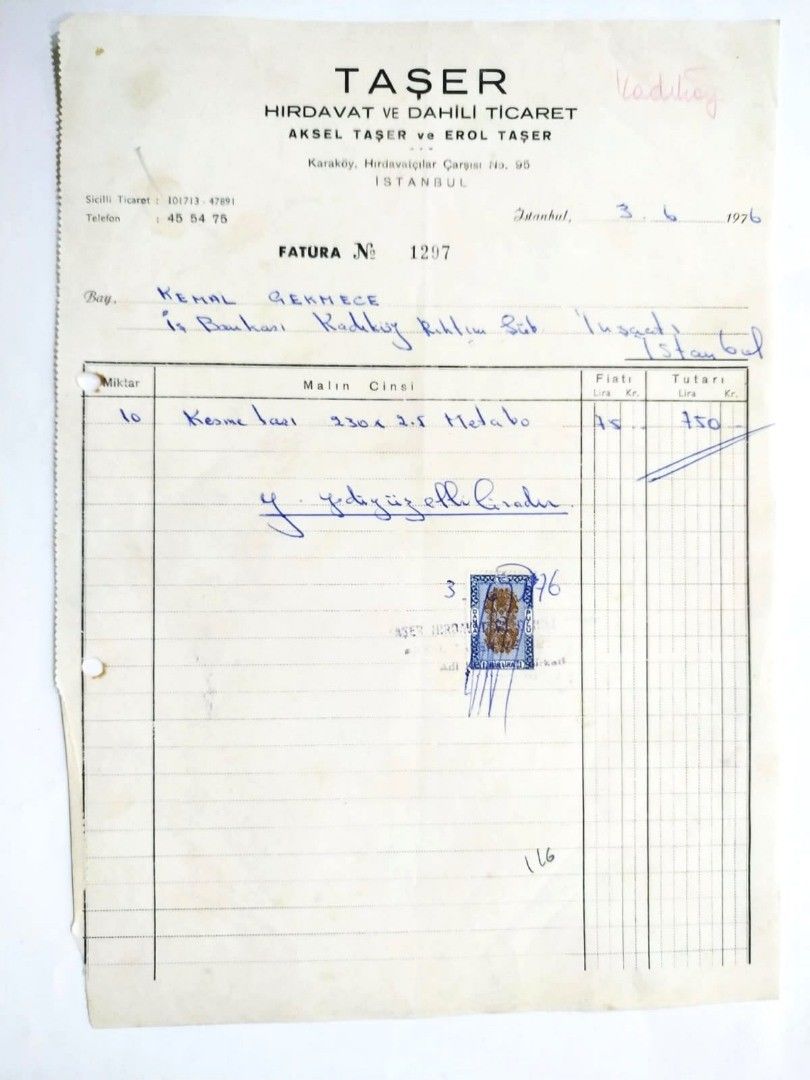 TAŞER
Kadıköy
HIRDAVAT VE DAHİLİ TİCARET
AKSEL TAŞER ve EROL TAŞER
Karaköy, Hırdavatçılar Çarşısı No. 95
İSTANBUL
Sicilli Ticaret : 101713 - 47891
Telefon : 45 54 75
İstanbul, 3 . 6 . 1976
FATURA № 1297
Bay, KEMAL ÇEKMECE
İş Bankası Kadıköy Rıhtım Şub. İnşaatı
İstanbul
Miktar Malın Cinsi Fiatı Tutarı
Lira Kr. Lira Kr.
10 Kesme taşı 230x2.5 Metabo 75 -- 750 --
Y. Yediyüzelli liradır.
3. 76
TAŞER HIRDAVAT
116